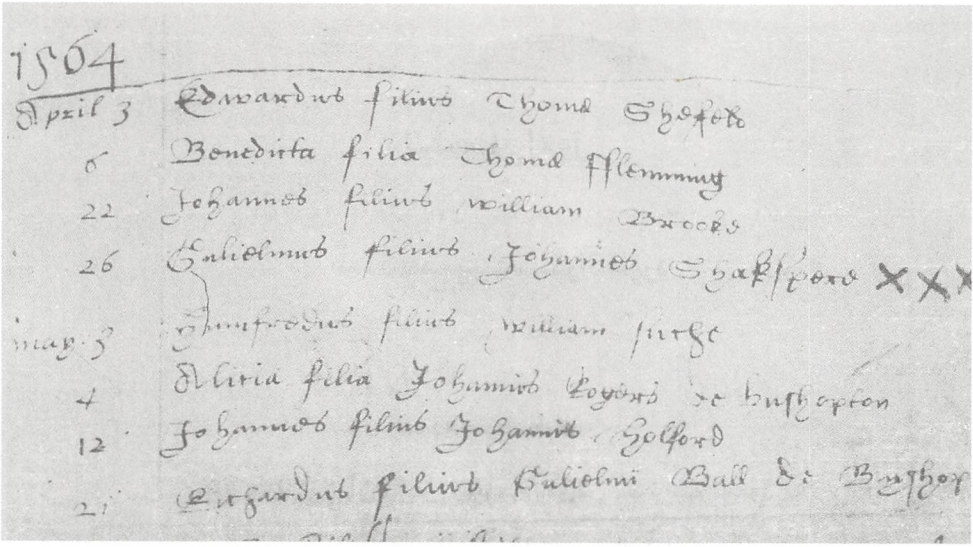 1564
April 3 Edwardus filius Thomæ Shefeld
6 Benedicta filia Thomæ fflemming
22 Johannes filius william Brooke
26 Gulielmus filius Johannes Shakspere XXX
may 3 Humfredus filius william
4 Alicia filia Johannis Rogers de bushopton
12 Johannes filius Johannis Holford
21 Richardus filius Gulielmi Ball de Byshop